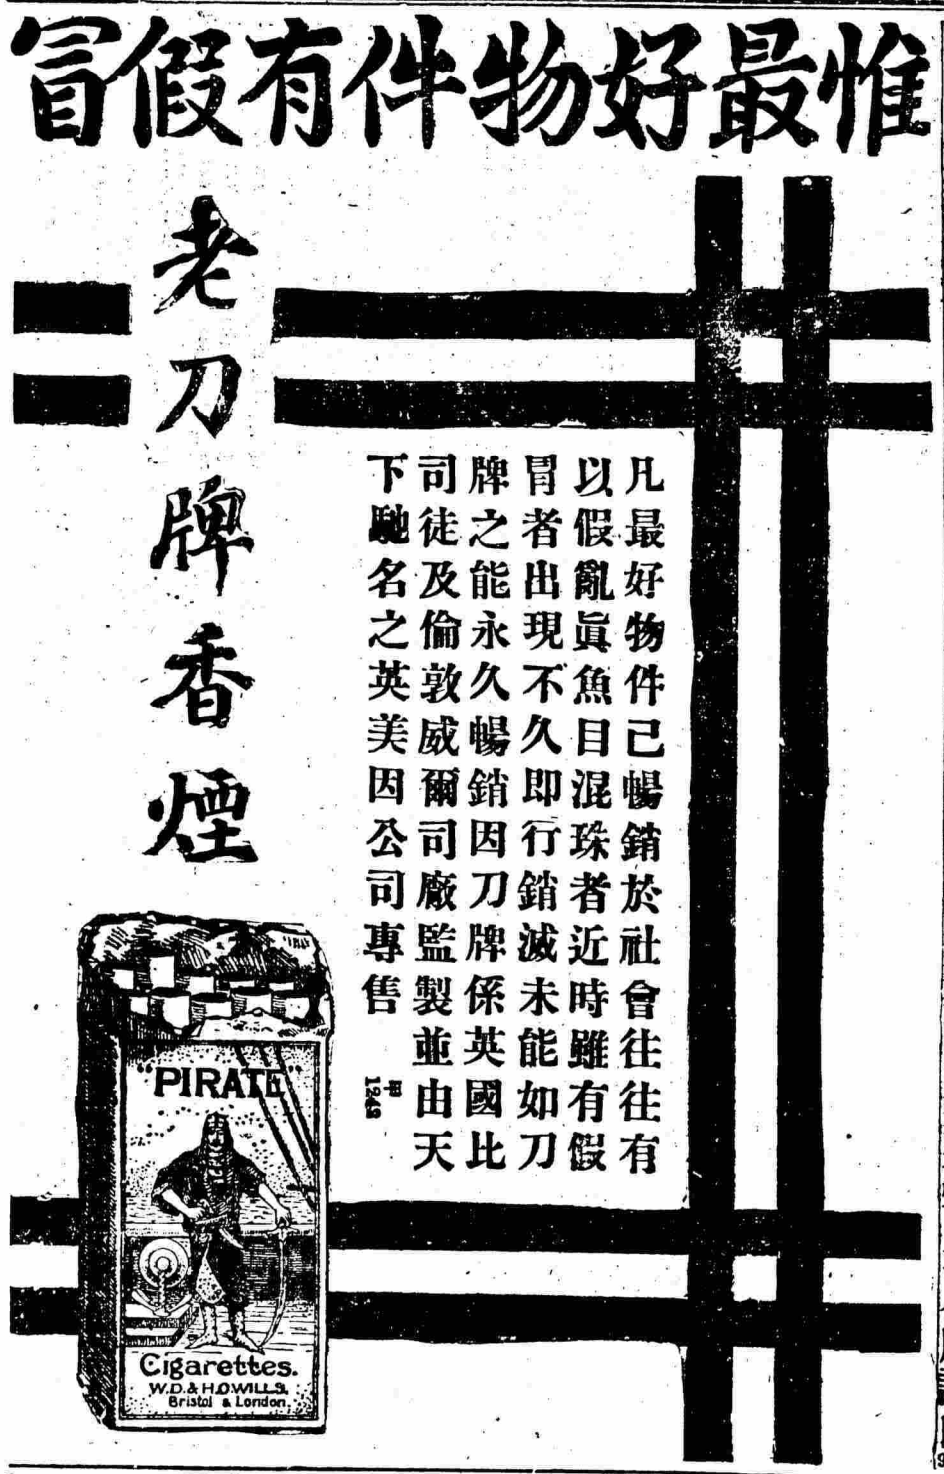 惟最好物件有假冒
凡最好物件己暢銷於社會往往有
以假亂眞魚目混珠者近時雖有假
冒者出現不久即行銷滅未能如刀
牌之能永久暢銷因刀牌係英國比
司徒及倫敦威爾司廠監製並由天
下馳名之英美因公司專售
甲
1249
老刀牌香煙
"PIRATE"
Cigarettes.
W.D. & H.O. WILLS.
Bristol & London.